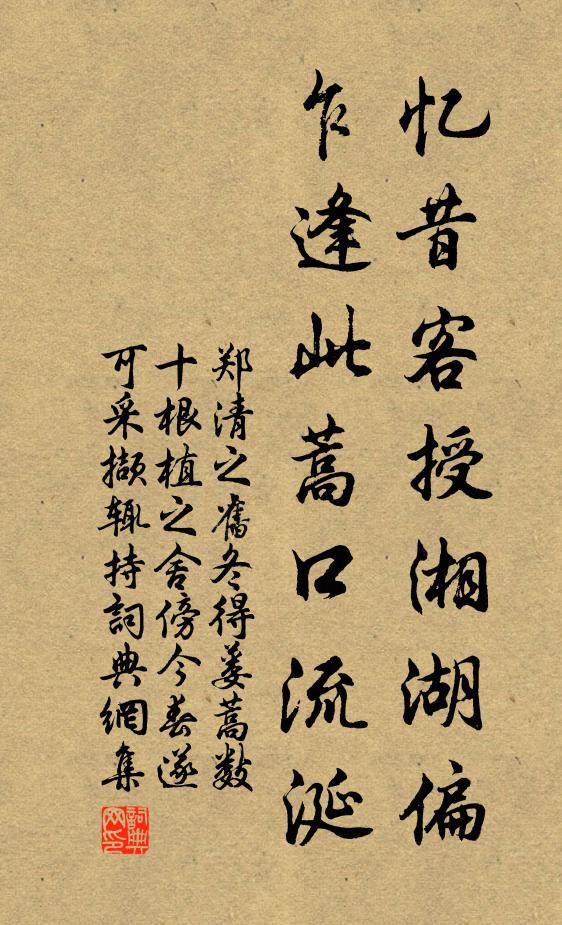 忆昔客授湘湖偏
乍逢此蒿口流涎
郑清之旧冬得蒌蒿数
十根植之舍傍今春遂
可采撷辄持詞典網集
詞典
网印